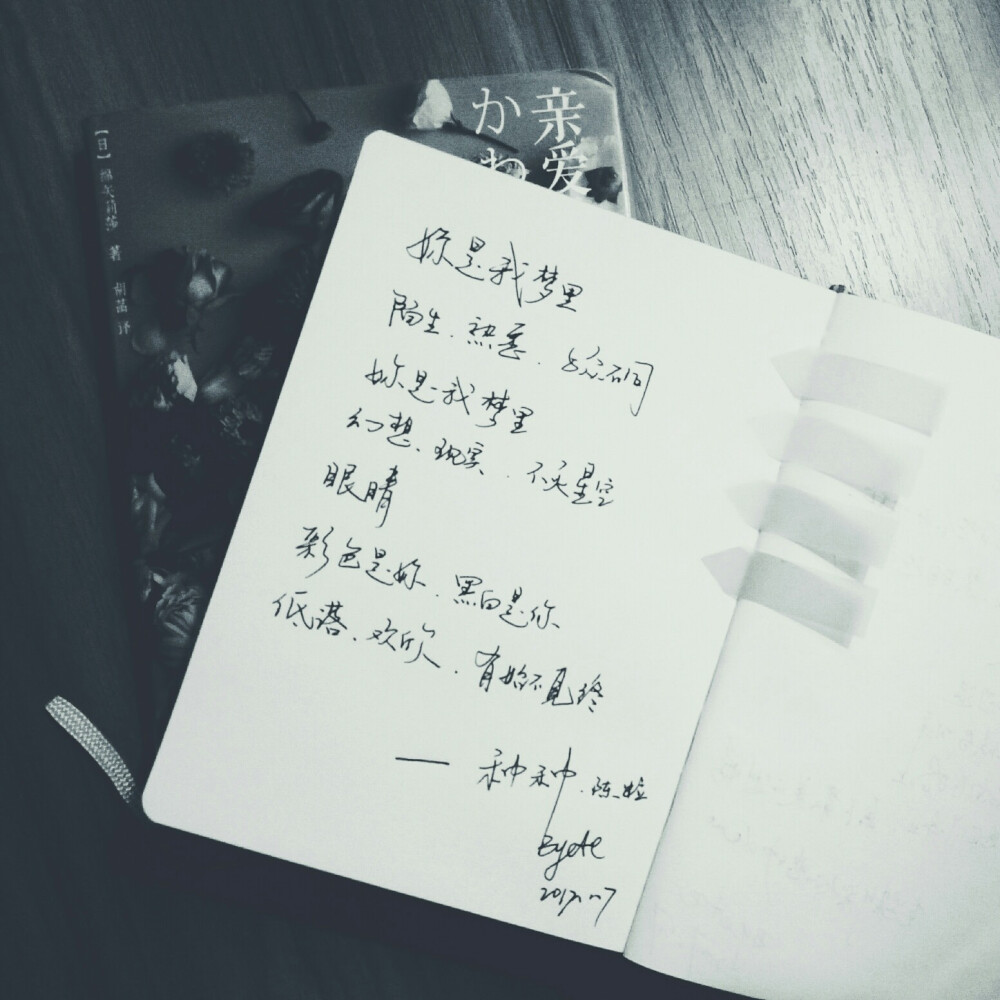 亲爱
かわ
[日] 绵矢莉莎 著 胡菡 译
妳是我梦里
陌生、熟悉、与众不同
妳是我梦里
幻想、现实、不灭星空
眼睛
彩色是妳、黑白是你
低落、欢欣、有始不见终
—— 种种、陈粒
2017.11.7